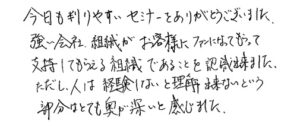 今日も判りやすいセミナーをありがとうございました。
強い会社、組織がお客様にファンになってもらって
支持してもらえる組織であることを認識出来ました。
ただし、人は経験しないと理解出来ないという
部分はとても奥が深いと感じました。